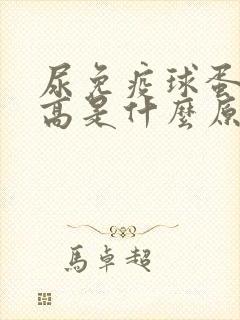 尿免疫球蛋
高是什麼原
馬卓超